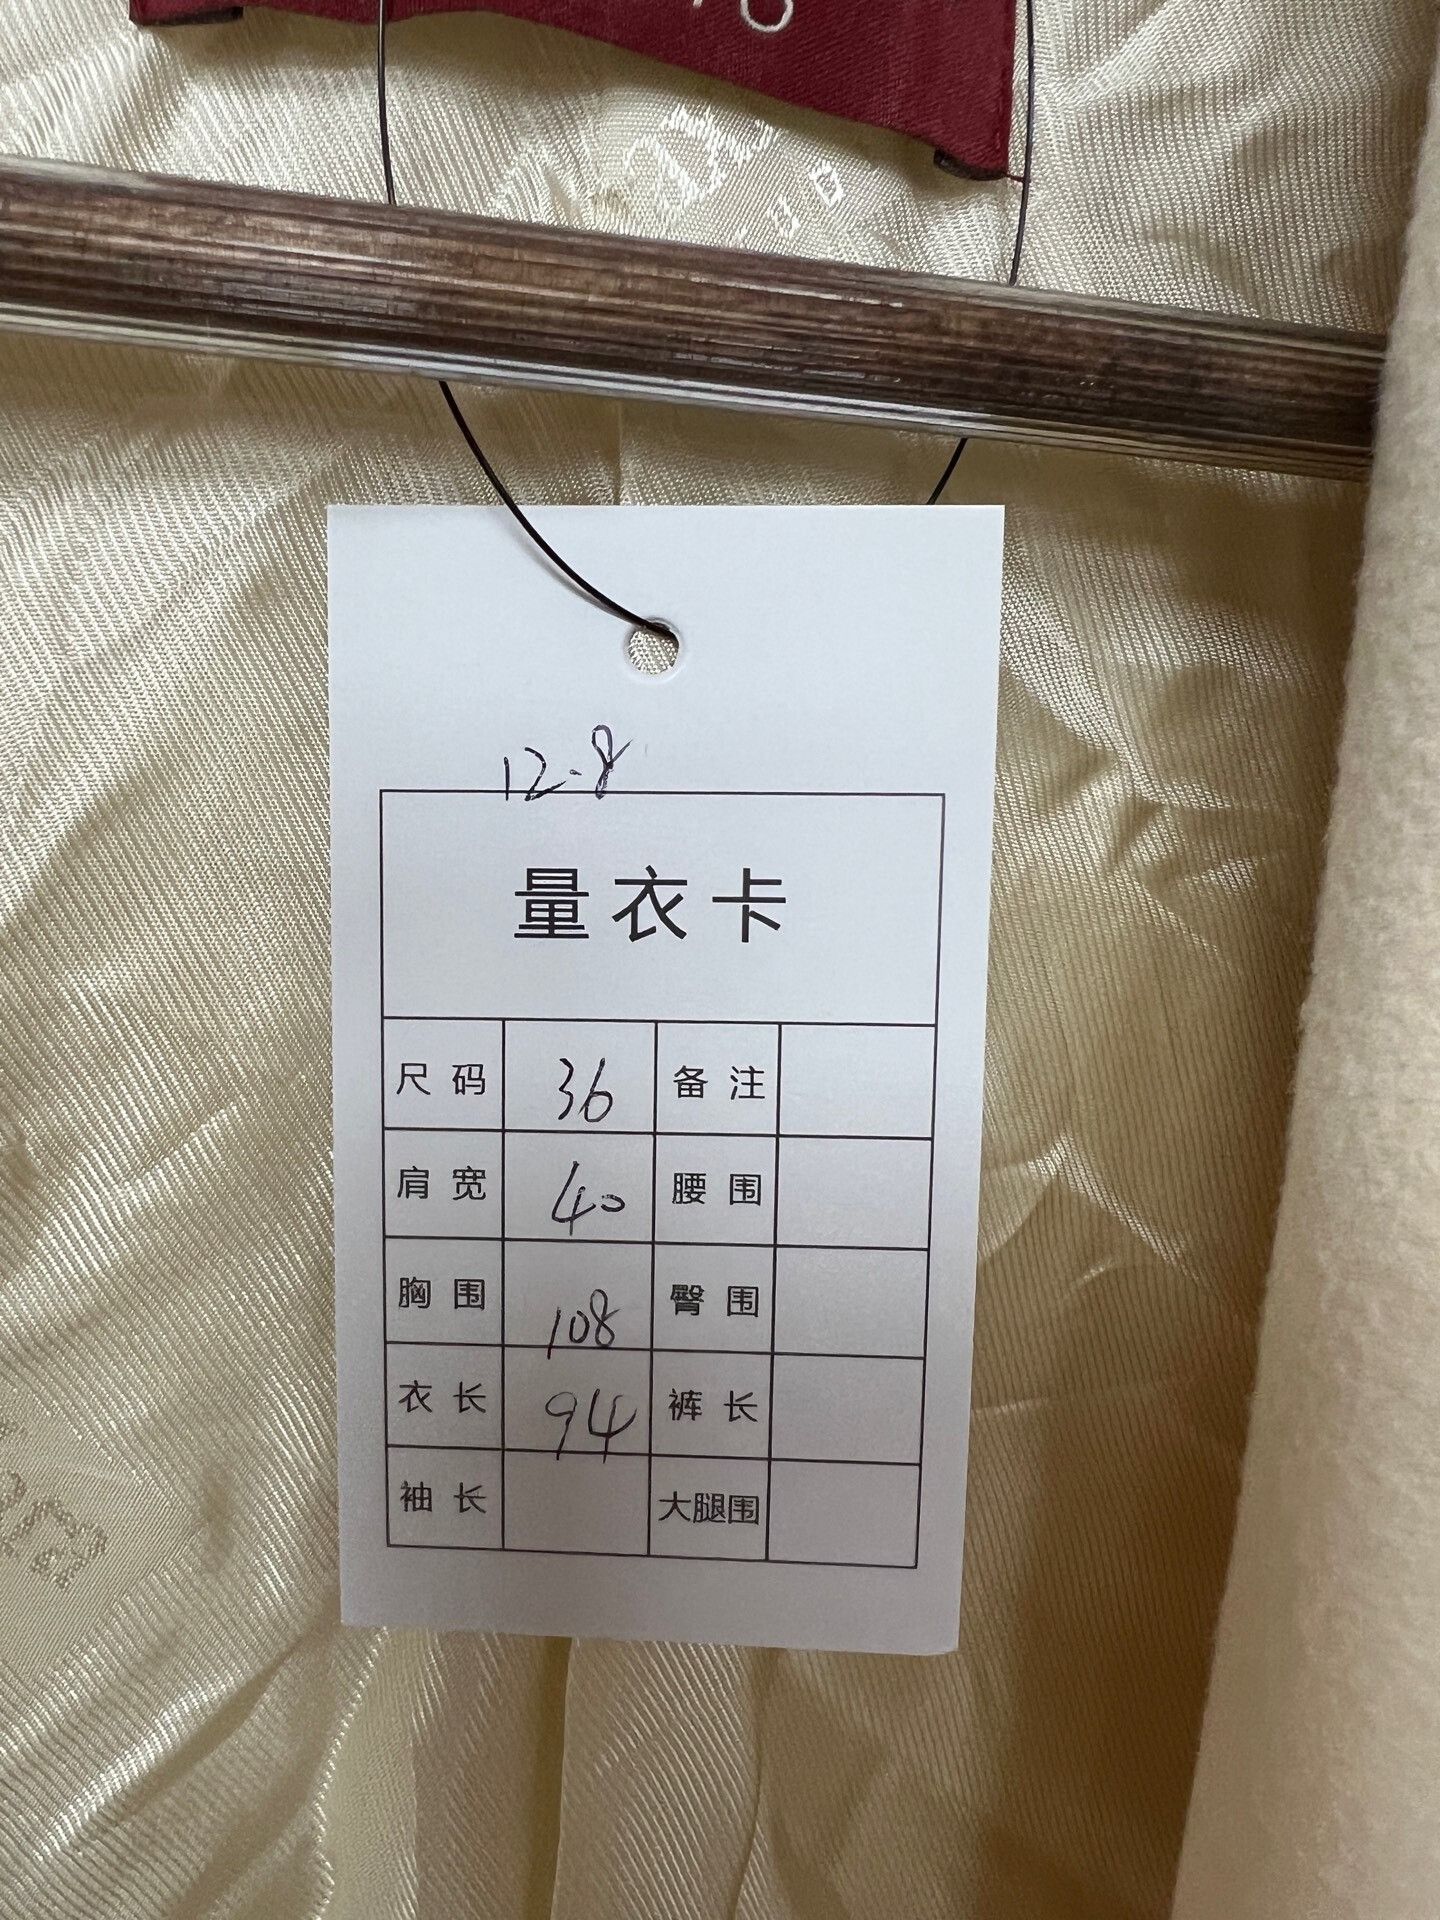 12.8
量衣卡
尺码 36 备注
肩宽 40 腰围
胸围 108 臀围
衣长 94 裤长
袖长 大腿围